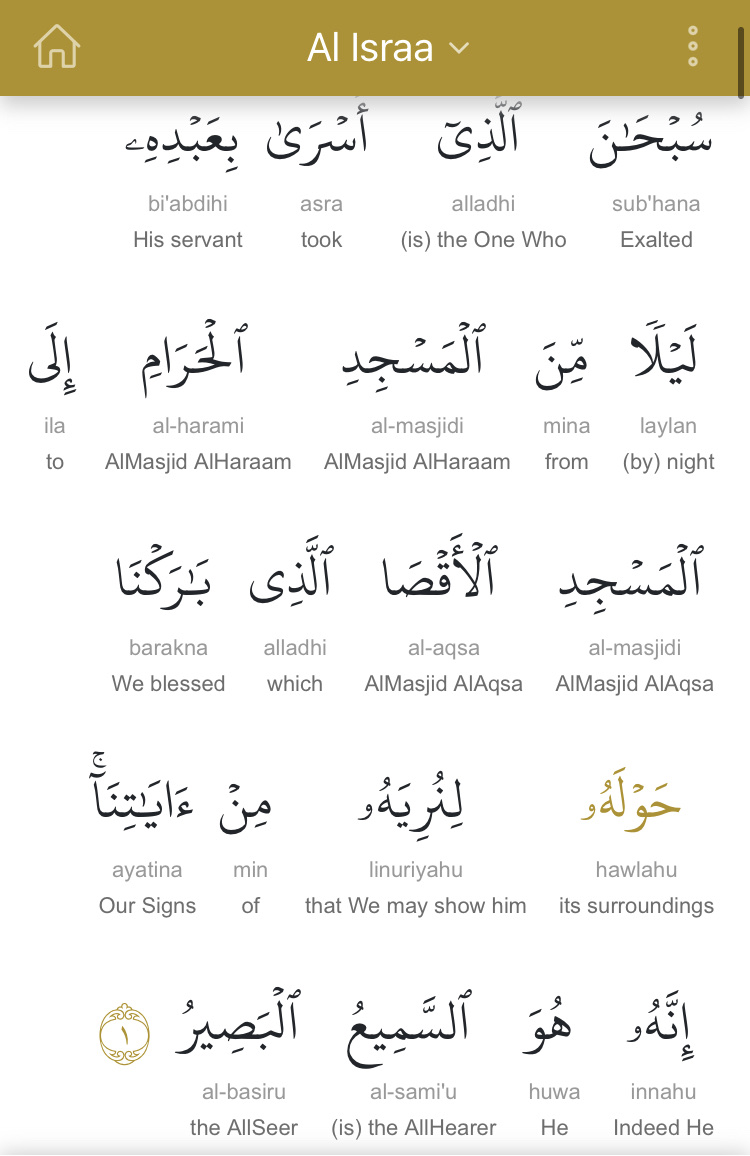 Al Israa
سُبْحَـٰنَ ٱلَّذِىٓ أَسْرَىٰ بِعَبْدِهِۦ
sub'hana alladhi asra bi'abdihi
Exalted (is) the One Who took His servant
لَيْلًا مِّنَ ٱلْمَسْجِدِ ٱلْحَرَامِ إِلَى
laylan mina al-masjidi al-harami ila
(by) night from AlMasjid AlHaraam AlMasjid AlHaraam to
ٱلْمَسْجِدِ ٱلْأَقْصَا ٱلَّذِى بَـٰرَكْنَا
al-masjidi al-aqsa alladhi barakna
AlMasjid AlAqsa AlMasjid AlAqsa which We blessed
حَوْلَهُۥ لِنُرِيَهُۥ مِنْ ءَايَـٰتِنَآ ۚ
hawlahu linuriyahu min ayatina
its surroundings that We may show him of Our Signs
إِنَّهُۥ هُوَ ٱلسَّمِيعُ ٱلْبَصِيرُ ١
innahu huwa al-sami'u al-basiru
Indeed He He (is) the AllHearer the AllSeer